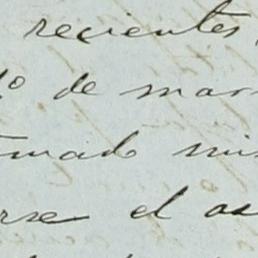 recientes,
1º de mar
mado mis
rse el as